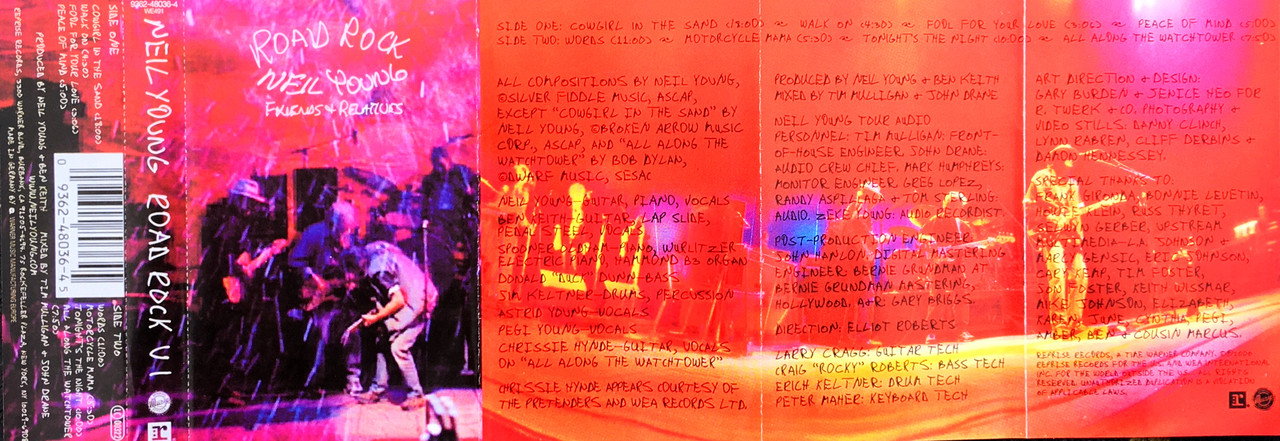 9362-48036-4
WE491
SIDE ONE
COWGIRL IN THE SAND (18:00)
WALK ON (4:30)
FOOL FOR YOUR LOVE (3:06)
PEACE OF MIND (5:00)
PRODUCED BY NEIL YOUNG & BEN KEITH MIXED BY TIM MULLIGAN & JOHN DRANE
WWW.NEILYOUNG.COM
REPRISE RECORDS, 3300 WARNER BLVD, BURBANK, CA 91505-4694. 75 ROCKEFELLER PLAZA, NEW YORK, NY 10019-6908
MADE IN GERMANY BY WARNER MUSIC MANUFACTURING EUROPE
0 9362-48036-4 5
SIDE TWO
WORDS (11:00)
MOTORCYCLE MAMA (5:30)
TONIGHT'S THE NIGHT (10:00)
ALL ALONG THE WATCHTOWER (7:50)
NEIL YOUNG ROAD ROCK V. 1
ROAD ROCK
NEIL YOUNG
FRIENDS & RELATIVES
SIDE ONE: COWGIRL IN THE SAND (18:00) ~ WALK ON (4:30) ~ FOOL FOR YOUR LOVE (3:06) ~ PEACE OF MIND (5:00)
SIDE TWO: WORDS (11:00) ~ MOTORCYCLE MAMA (5:30) ~ TONIGHT'S THE NIGHT (10:00) ~ ALL ALONG THE WATCHTOWER (7:50)
ALL COMPOSITIONS BY NEIL YOUNG,
©SILVER FIDDLE MUSIC, ASCAP,
EXCEPT "COWGIRL IN THE SAND" BY
NEIL YOUNG, ©BROKEN ARROW MUSIC
CORP., ASCAP, AND "ALL ALONG THE
WATCHTOWER" BY BOB DYLAN,
©DWARF MUSIC, SESAC
NEIL YOUNG-GUITAR, PIANO, VOCALS
BEN KEITH-GUITAR, LAP SLIDE,
PEDAL STEEL, VOCALS
SPOONER OLDHAM-PIANO, WURLITZER
ELECTRIC PIANO, HAMMOND B3 ORGAN
DONALD "DUCK" DUNN-BASS
JIM KELTNER-DRUMS, PERCUSSION
ASTRID YOUNG-VOCALS
PEGI YOUNG-VOCALS
CHRISSIE HYNDE-GUITAR, VOCALS
ON "ALL ALONG THE WATCHTOWER"
CHRISSIE HYNDE APPEARS COURTESY OF
THE PRETENDERS AND WEA RECORDS LTD.
PRODUCED BY NEIL YOUNG & BEN KEITH
MIXED BY TIM MULLIGAN & JOHN DRANE
NEIL YOUNG TOUR AUDIO
PERSONNEL: TIM MULLIGAN: FRONT-
OF-HOUSE ENGINEER. JOHN DRANE:
AUDIO CREW CHIEF. MARK HUMPHREYS:
MONITOR ENGINEER. GREG LOPEZ,
RANDY ASPILLAGA & TOM STERLING:
AUDIO. ZEKE YOUNG: AUDIO RECORDIST.
POST-PRODUCTION ENGINEER:
JOHN HANLON. DIGITAL MASTERING
ENGINEER: BERNIE GRUNDMAN AT
BERNIE GRUNDMAN MASTERING,
HOLLYWOOD. A&R: GARY BRIGGS.
DIRECTION: ELLIOT ROBERTS
LARRY CRAGG: GUITAR TECH
CRAIG "ROCKY" ROBERTS: BASS TECH
ERICH KELTNER: DRUM TECH
PETER MAHER: KEYBOARD TECH
ART DIRECTION & DESIGN:
GARY BURDEN & JENICE HEO FOR
R. TWERK & CO. PHOTOGRAPHY &
VIDEO STILLS: DANNY CLINCH,
LYNN RABREN, CLIFF DERBINS &
DAMON HENNESSEY.
SPECIAL THANKS TO:
FRANK GIRONDA, BONNIE LEVETIN,
HOWIE KLEIN, RUSS THYRET,
SELWYN GERBER, UPSTREAM
MULTIMEDIA-L.A. JOHNSON &
MARCY GENSIC, ERIC JOHNSON,
GARY KEMP, TIM FOSTER,
JON FOSTER, KEITH WISSMAR,
MIKE JOHNSON, ELIZABETH,
KAREN, JUNE, CYNTHIA, PEGI,
AMBER, BEN & COUSIN MARCUS.
REPRISE RECORDS, A TIME WARNER COMPANY. ©2000
REPRISE RECORDS FOR THE U.S. AND WEA INTERNATIONAL
INC. FOR THE WORLD OUTSIDE THE U.S. ALL RIGHTS
RESERVED. UNAUTHORIZED DUPLICATION IS A VIOLATION
OF APPLICABLE LAWS.